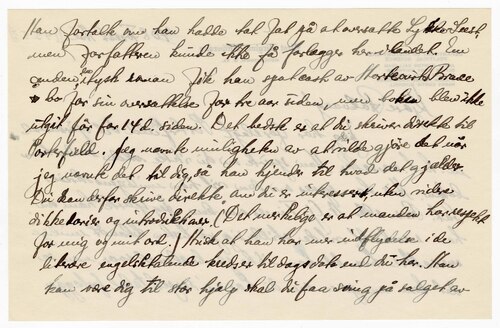 Han fortalte om han hadde tat fat på at oversætte
men forfatteren kunde ikke få forlægger her i landet. En
anden tysk roman fik han spat cash av Harcourt Brace
& Co for sin oversættelse for tre aar siden, men boken blev ikke
utgit før for 14 d. siden. Det bedste er at du skriver direkte til
Porterfield. Jeg nævnte muligheten av at vilde gjøre det når
jeg nævnte det til dig, så han kjender til hvad det gjælder.
Du kan derfor skrive direkte om du er interessert, uten videre
dikkedarier og introduktioner. (Det merkelige er at manden har respekt
for mig og mit ord.) Husk at han har mer indflydelse i de
literære engelsktalende kredser til dags dato end du har. Han
kan være dig til stor hjelp skal du faa sving på salget av